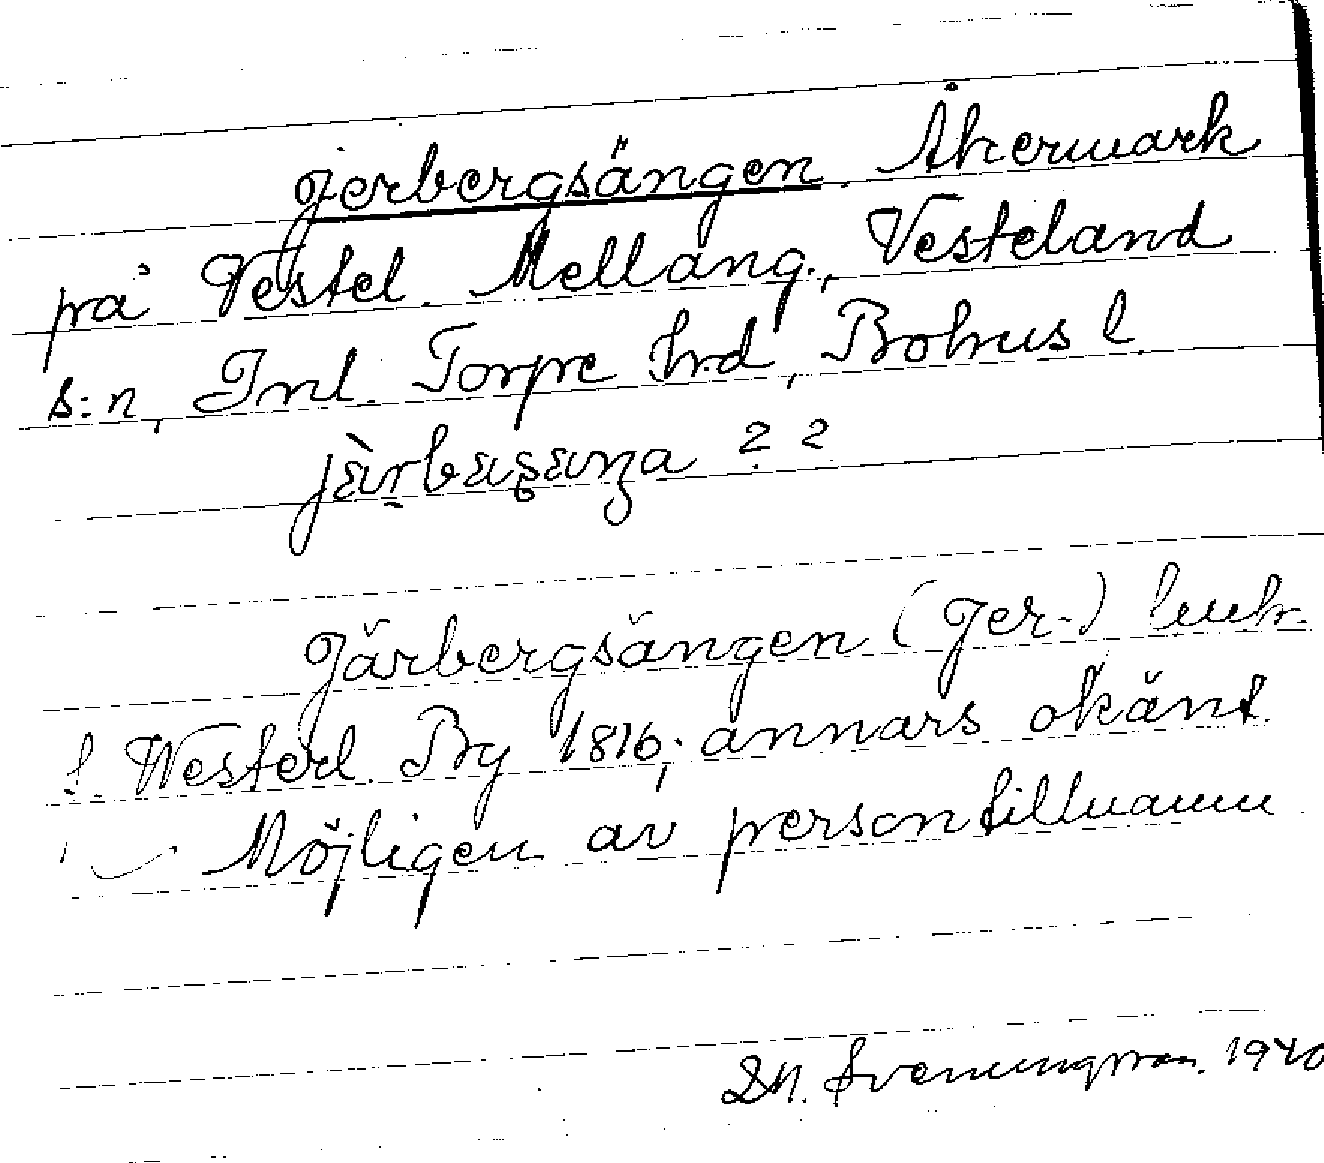 Jerbergsängen. Åkermark
på Vestel. Mellang., Vesteland
s:n, Inl. Torpe hrd, Bohus l.
Järbergsängen (Jer-) lmh.
f. Westerl. By 1816; annars okänt.
Möjligen av persontillnamn
Svenungsson. 1940